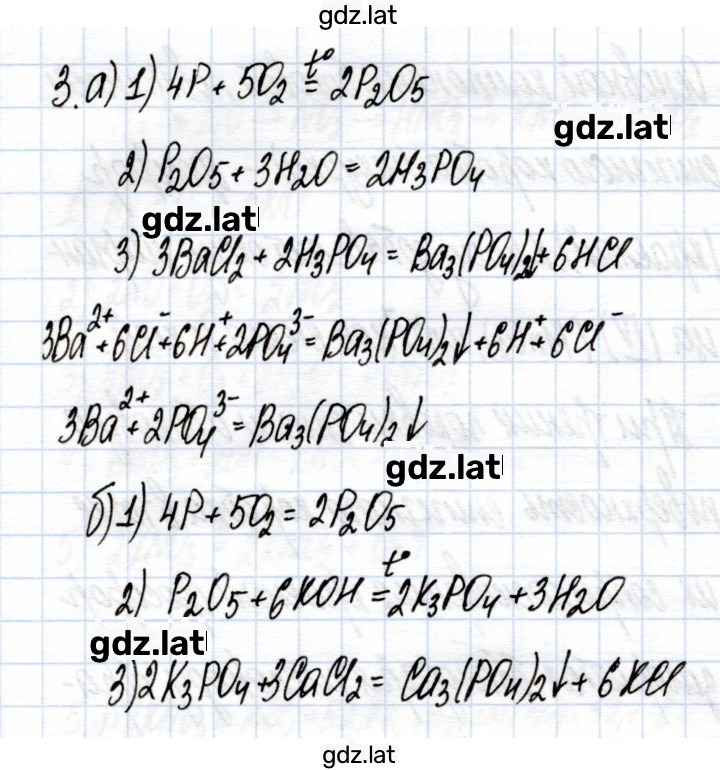 gdz.lat
3. а) 1) 4P + 5O₂ =(t°) 2P₂O₅
gdz.lat
2) P₂O₅ + 3H₂O = 2H₃PO₄
gdz.lat
3) 3BaCl₂ + 2H₃PO₄ = Ba₃(PO₄)₂↓ + 6HCl
3Ba²⁺ + 6Cl⁻ + 6H⁺ + 2PO₄³⁻ = Ba₃(PO₄)₂↓ + 6H⁺ + 6Cl⁻
3Ba²⁺ + 2PO₄³⁻ = Ba₃(PO₄)₂↓
gdz.lat
б) 1) 4P + 5O₂ = 2P₂O₅
2) P₂O₅ + 6KOH =(t°) 2K₃PO₄ + 3H₂O
gdz.lat
3) 2K₃PO₄ + 3CaCl₂ = Ca₃(PO₄)₂↓ + 6KCl
gdz.lat